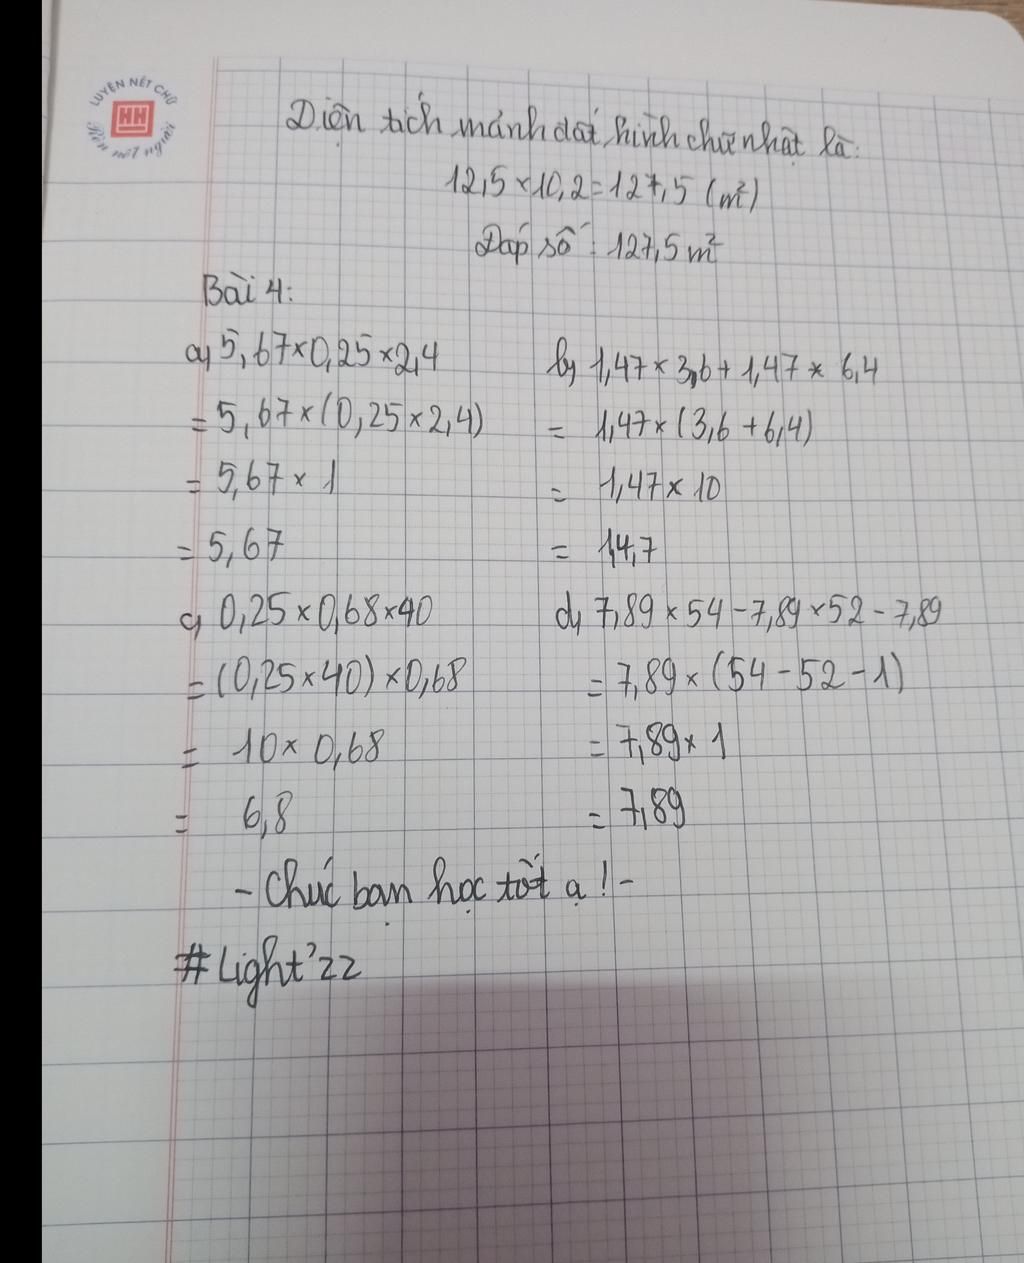 LUYỆN NÉT CHỮ
HH
Rèn nết người
Diện tích mảnh đất hình chữ nhật là:
12,5 × 10,2 = 127,5 (m²)
Đáp số : 127,5 m²
Bài 4:
a, 5,67 × 0,25 × 2,4
= 5,67 × (0,25 × 2,4)
= 5,67 × 1
= 5,67
b, 1,47 × 3,6 + 1,47 × 6,4
= 1,47 × (3,6 + 6,4)
= 1,47 × 10
= 14,7
c, 0,25 × 0,68 × 40
= (0,25 × 40) × 0,68
= 10 × 0,68
= 6,8
d, 7,89 × 54 - 7,89 × 52 - 7,89
= 7,89 × (54 - 52 - 1)
= 7,89 × 1
= 7,89
- Chúc bạn học tốt ạ ! -
# Light'22